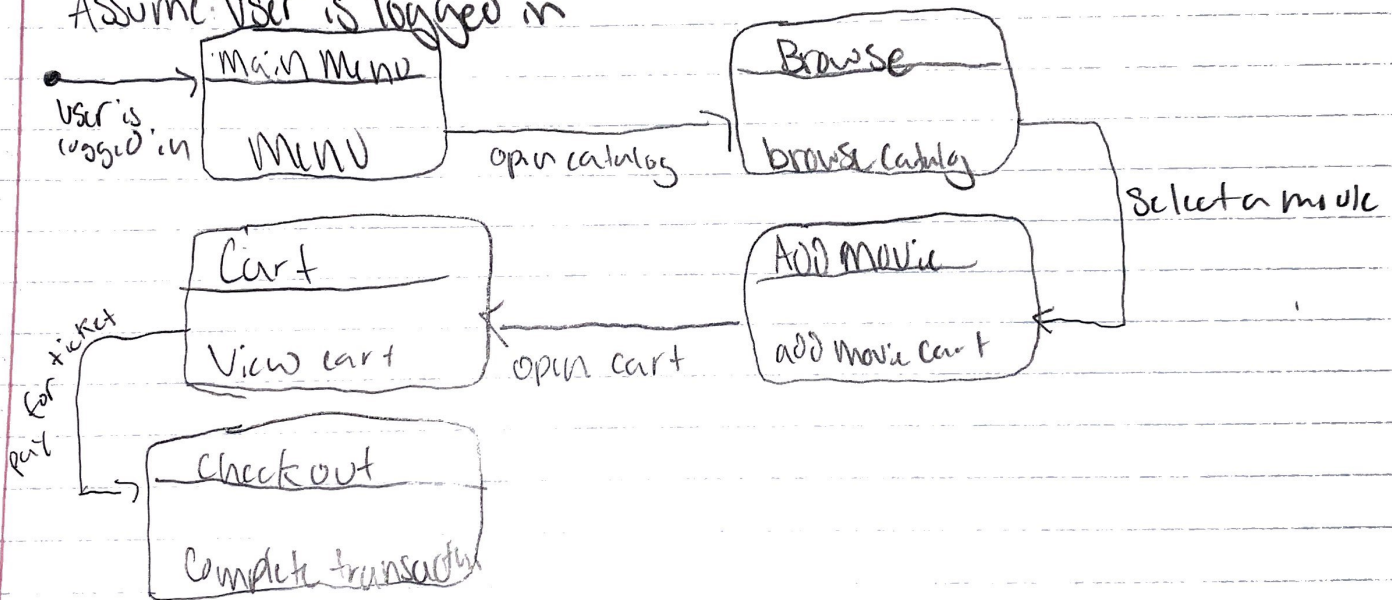 Assume: User is logged in
Main Menu
Menu
User is
logged in
open catalog
Browse
browse catalog
Select a movie
Add Movie
add movie cart
open cart
Cart
View cart
pay for ticket
Checkout
Complete transaction